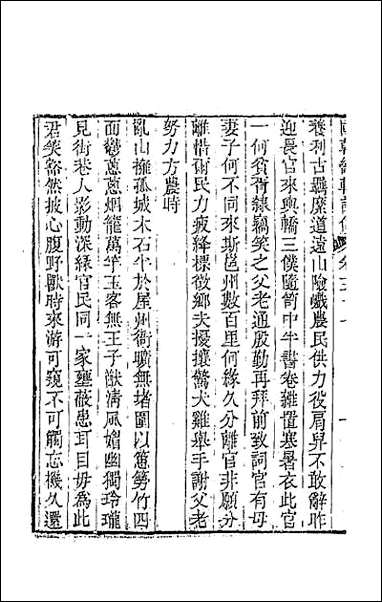 國朝
養利古羈縻道遠山險巇農民供力役肩舁不敢辭昨
迎長官來輿轎三僕隨筍中半書卷雜置寒暑衣此官
一何貧胥隸竊笑之父老通殷勤再拜前致詞官有母
妻子何不同來斯邕州數百里何緣久分離官非願分
離惜爾民力疲絳標徵鄉夫擾攘驚犬雞舉手謝父老
努力方農時
亂山擁孤城木石半於屋州衙曠無堵圍以䓗簩竹四
面鬱蔥蔥烟籠萬竿玉客無王子猷清風媚幽獨玲瓏
見街巷人影動深綠官民同一家壅蔽患耳目毋為此
君笑谿然披心腹野獸時來游可窺不可觸忘機久還